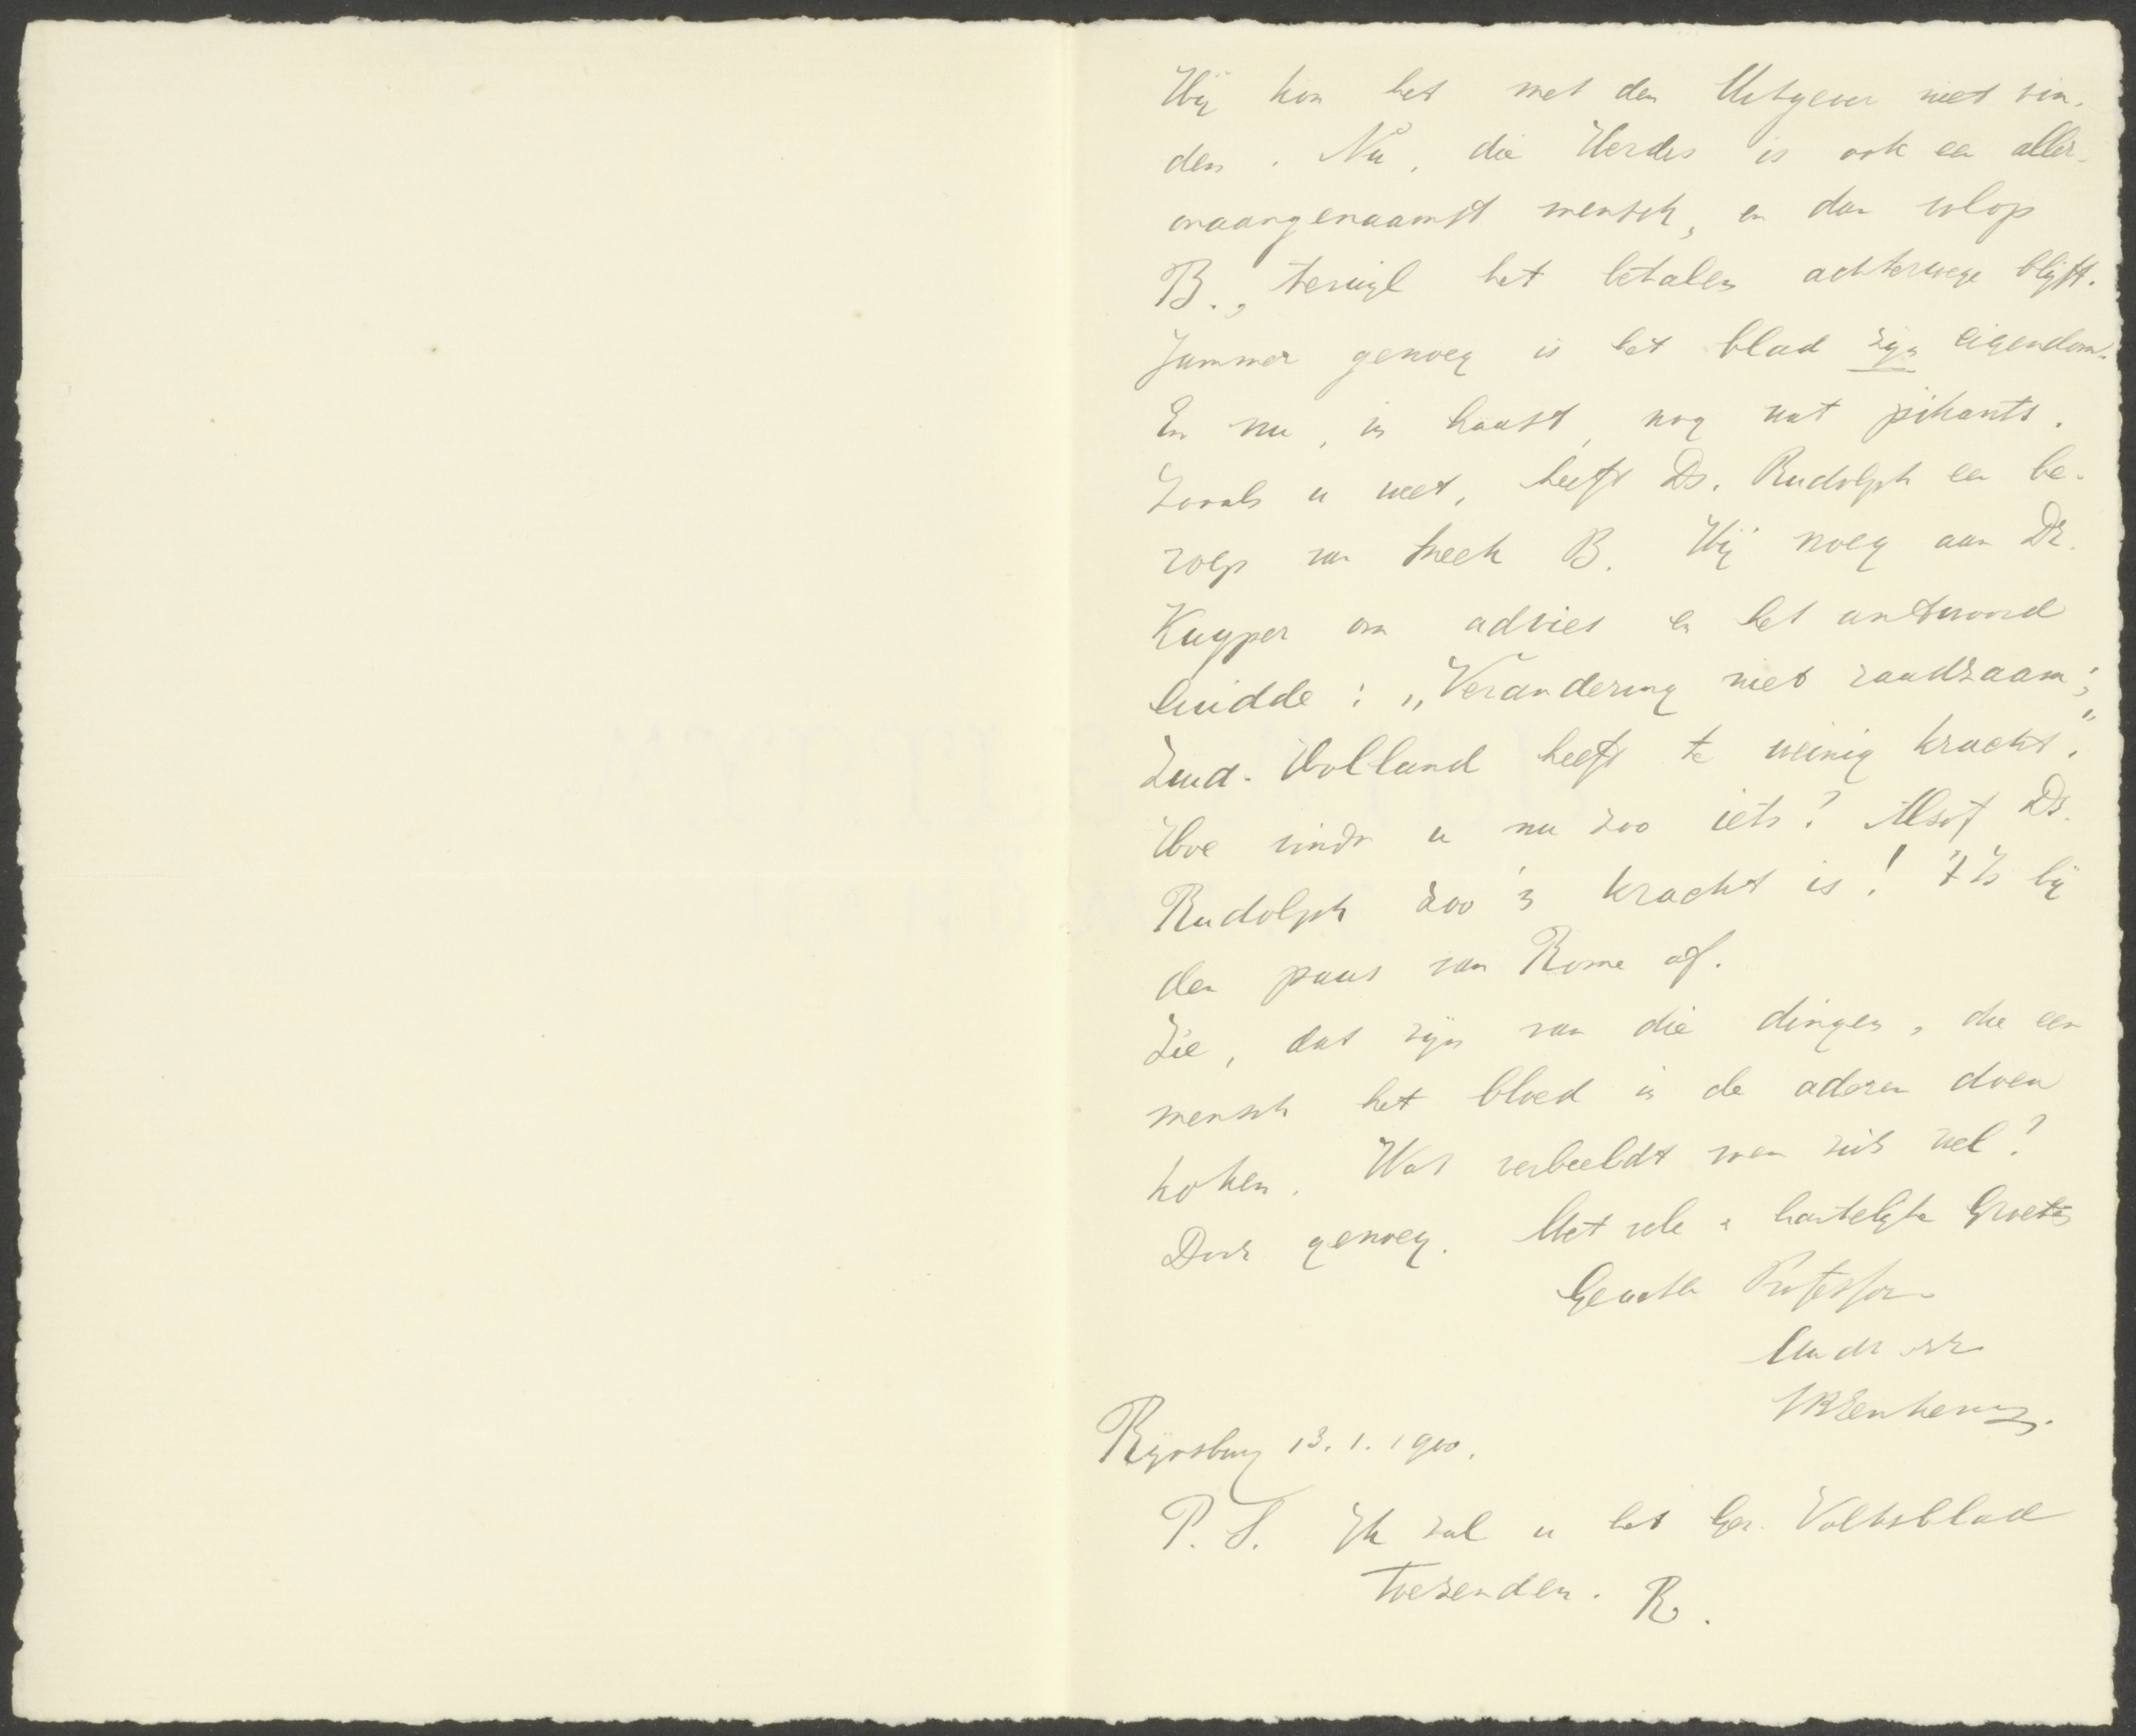 Hij kon het met den Uitgever niet vin-
den. Nu, die Herdes is ook een aller-
onaangenaamst mensch, en dan volop
B., terwijl het betalen achterwege blijft.
Jammer genoeg is het blad zijn eigendom.
En nu, in haast, nog wat pikants.
Zooals u weet, heeft Ds. Rudolph een be-
roep van Sneek B. Hij vroeg aan Dr.
Kuyper om advies en het antwoord
luidde: „Verandering niet raadzaam;
Zuid-Holland heeft te weinig kracht."
Hoe vindt u nu zoo iets? Alsof Ds.
Rudolph zoo'n kracht is! 't Is bij
den paus van Rome af.
Zie, dat zijn van die dingen, die een
mensch het bloed in de aderen doen
koken. Wat verbeeldt men zich wel?
Doch genoeg. Met vele & hartelijke Groeten
Geachte Professor
Rijnsburg 13.1.1900.
P.S. Ik zal u het Ger. Volksblad
toezenden. R.